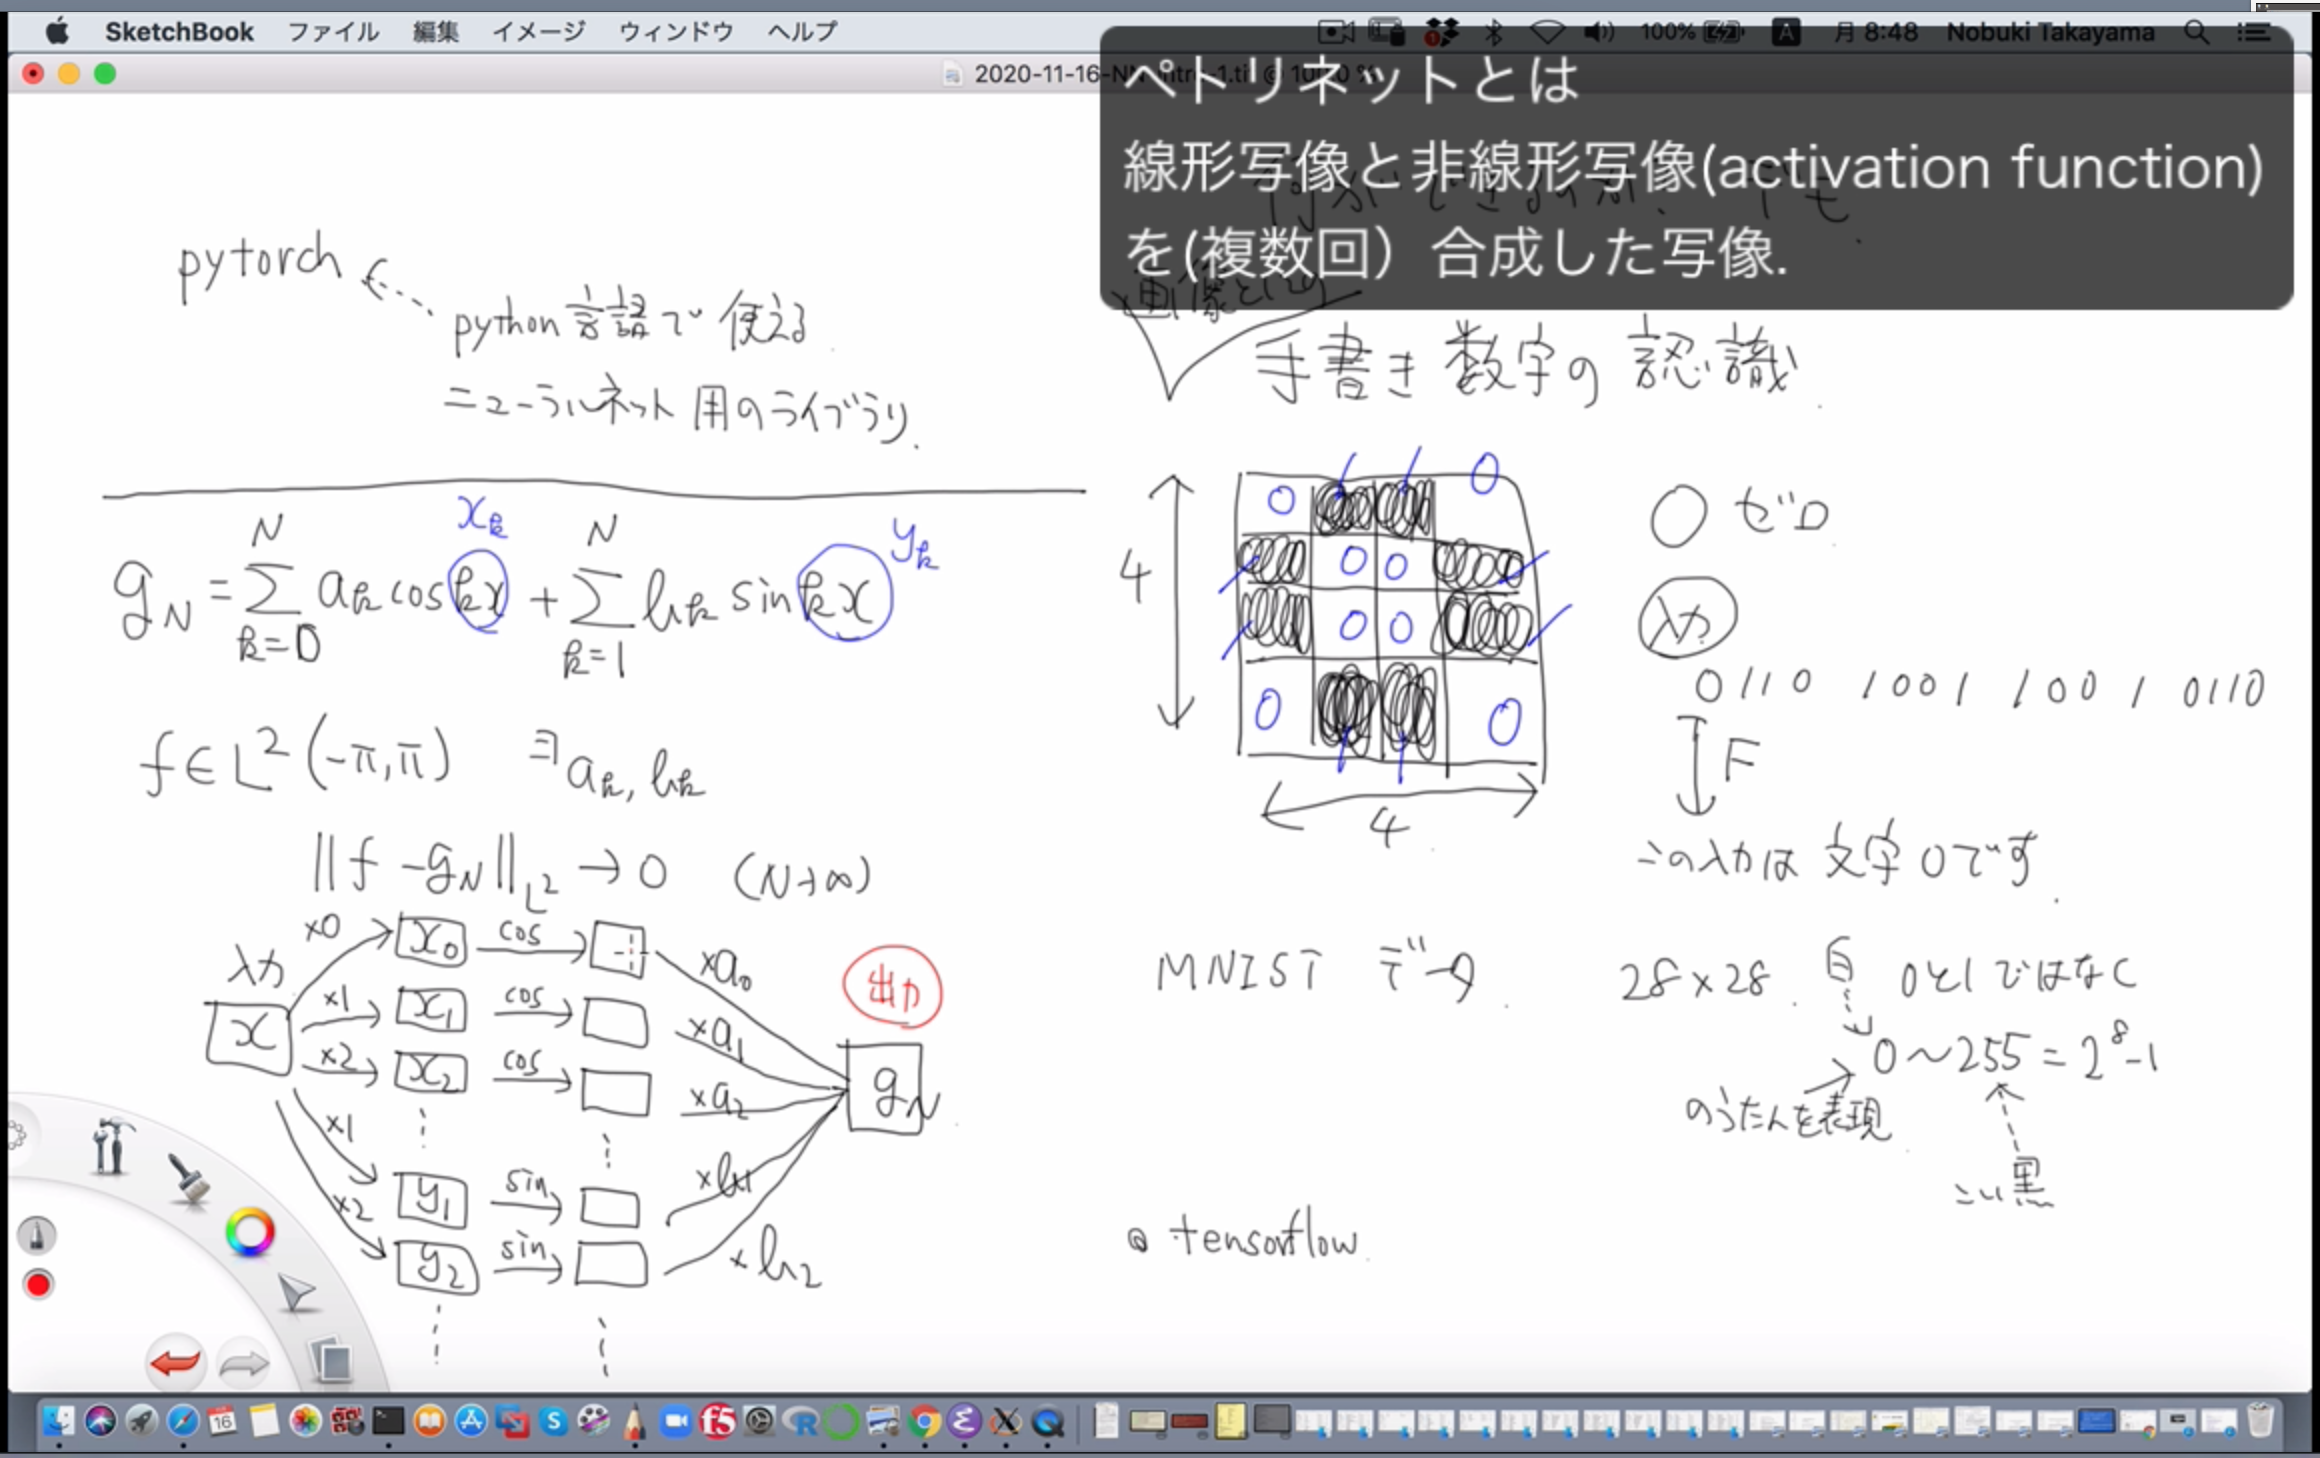 SketchBook ファイル 編集 イメージ ウィンドウ ヘルプ 100% A 月 8:48 Nobuki Takayama
2020-11-16-NN
ペトリネットとは
線形写像と非線形写像(activation function)
を(複数回）合成した写像.
pytorch
python言語で使える
ニューラルネット用のライブラリ.
g_N = Σ_{k=0}^{N} a_k cos kx + Σ_{k=1}^{N} b_k sin kx
x_k
y_k
f∈L²(-π,π) ∃a_k, b_k
||f-g_N||_{L²} → 0 (N→∞)
入力
x
×0 x_0 cos ×a_0
×1 x_1 cos ×a_1
×2 x_2 cos ×a_2
×1 y_1 sin ×b_1
×2 y_2 sin ×b_2
出力
g_N
手書き数字の認識.
4
0 1 1 0
1 0 0 1
1 0 0 1
0 1 1 0
4
0 ゼロ
入力
0110 1001 1001 0110
F
この入力は文字0です.
MNIST データ. 28×28. 白 0と1ではなく
0~255=2⁸-1
のうたんを表現
こい黒
tensorflow
16
f5